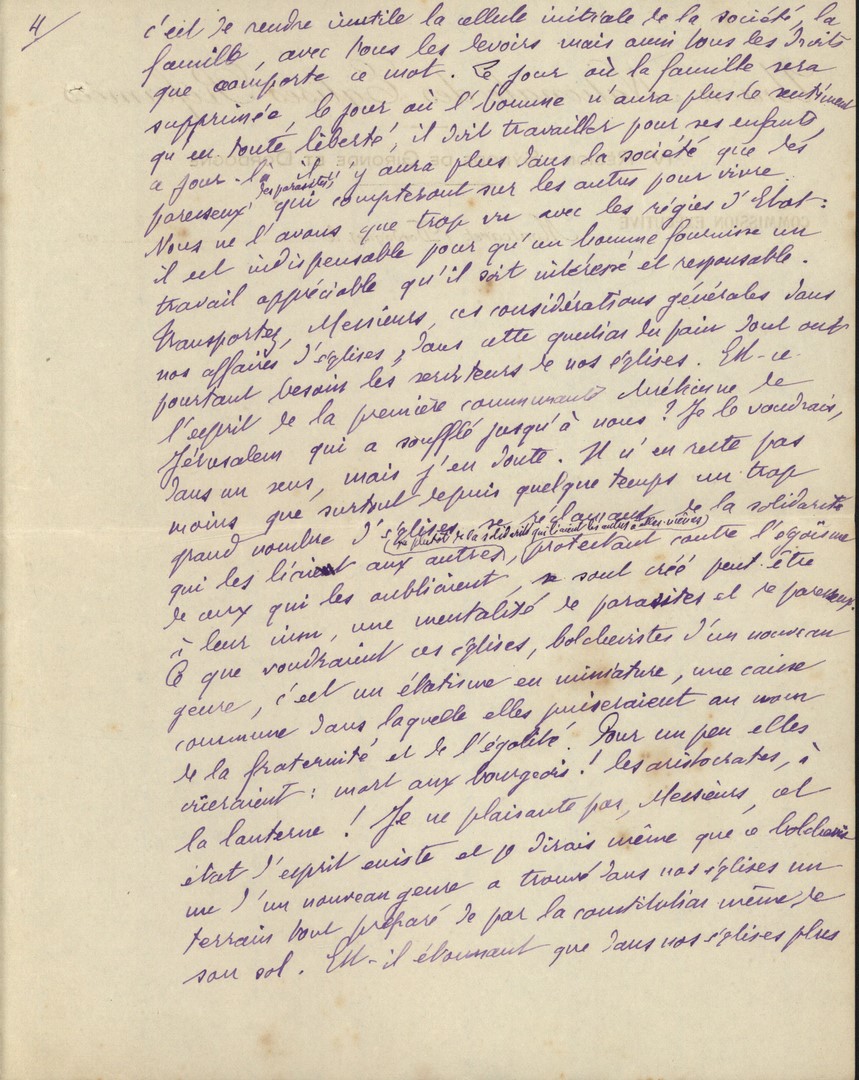 4/
c'est de rendre inutile la cellule initiale de la société, la
famille, avec tous les devoirs mais aussi tous les droits
que comporte ce mot. Le jour où la famille sera
supprimée, le jour où l'homme n'aura plus le sentiment
qu'en toute liberté, il doit travailler pour ses enfants,
ce jour-là il n'y aura plus dans la société que des
des parasites,
paresseux qui compteront sur les autres pour vivre.
Nous ne l'avons que trop vu avec les régies d'Etat :
il est indispensable pour qu'un homme fournisse un
travail appréciable qu'il soit intéressé et responsable.
Transportez, Messieurs, ces considérations générales dans
nos affaires d'églises, dans cette question du pain dont ont
pourtant besoin les serviteurs de nos églises. Est-ce
l'esprit de la première communauté chrétienne de
Jérusalem qui a soufflé jusqu'à nous ? Je le voudrais,
dans un sens, mais j'en doute. Il n'en reste pas
moins que surtout depuis quelque temps un trop
grand nombre d'églises, se réclamant de la solidarité
(ou plutôt de la solidarité qui liaient les autres à elles-mêmes)
qui les liaient aux autres, protestant contre l'égoïsme
de ceux qui les oubliaient, se sont créé peut être
à leur insu, une mentalité de parasites et de paresseux.
Ce que voudraient ces églises, bolchevistes d'un nouveau
genre, c'est un étatisme en miniature, une caisse
commune dans laquelle elles puiseraient au nom
de la fraternité et de l'égalité. Pour un peu elles
crieraient : mort aux bourgeois ! les aristocrates, à
la lanterne ! Je ne plaisante pas, Messieurs, cet
état d'esprit existe et je dirais même que ce bolchevis
me d'un nouveau genre a trouvé dans nos églises un
terrain tout préparé de par la constitution même de
son sol. Est-il étonnant que dans nos églises plus